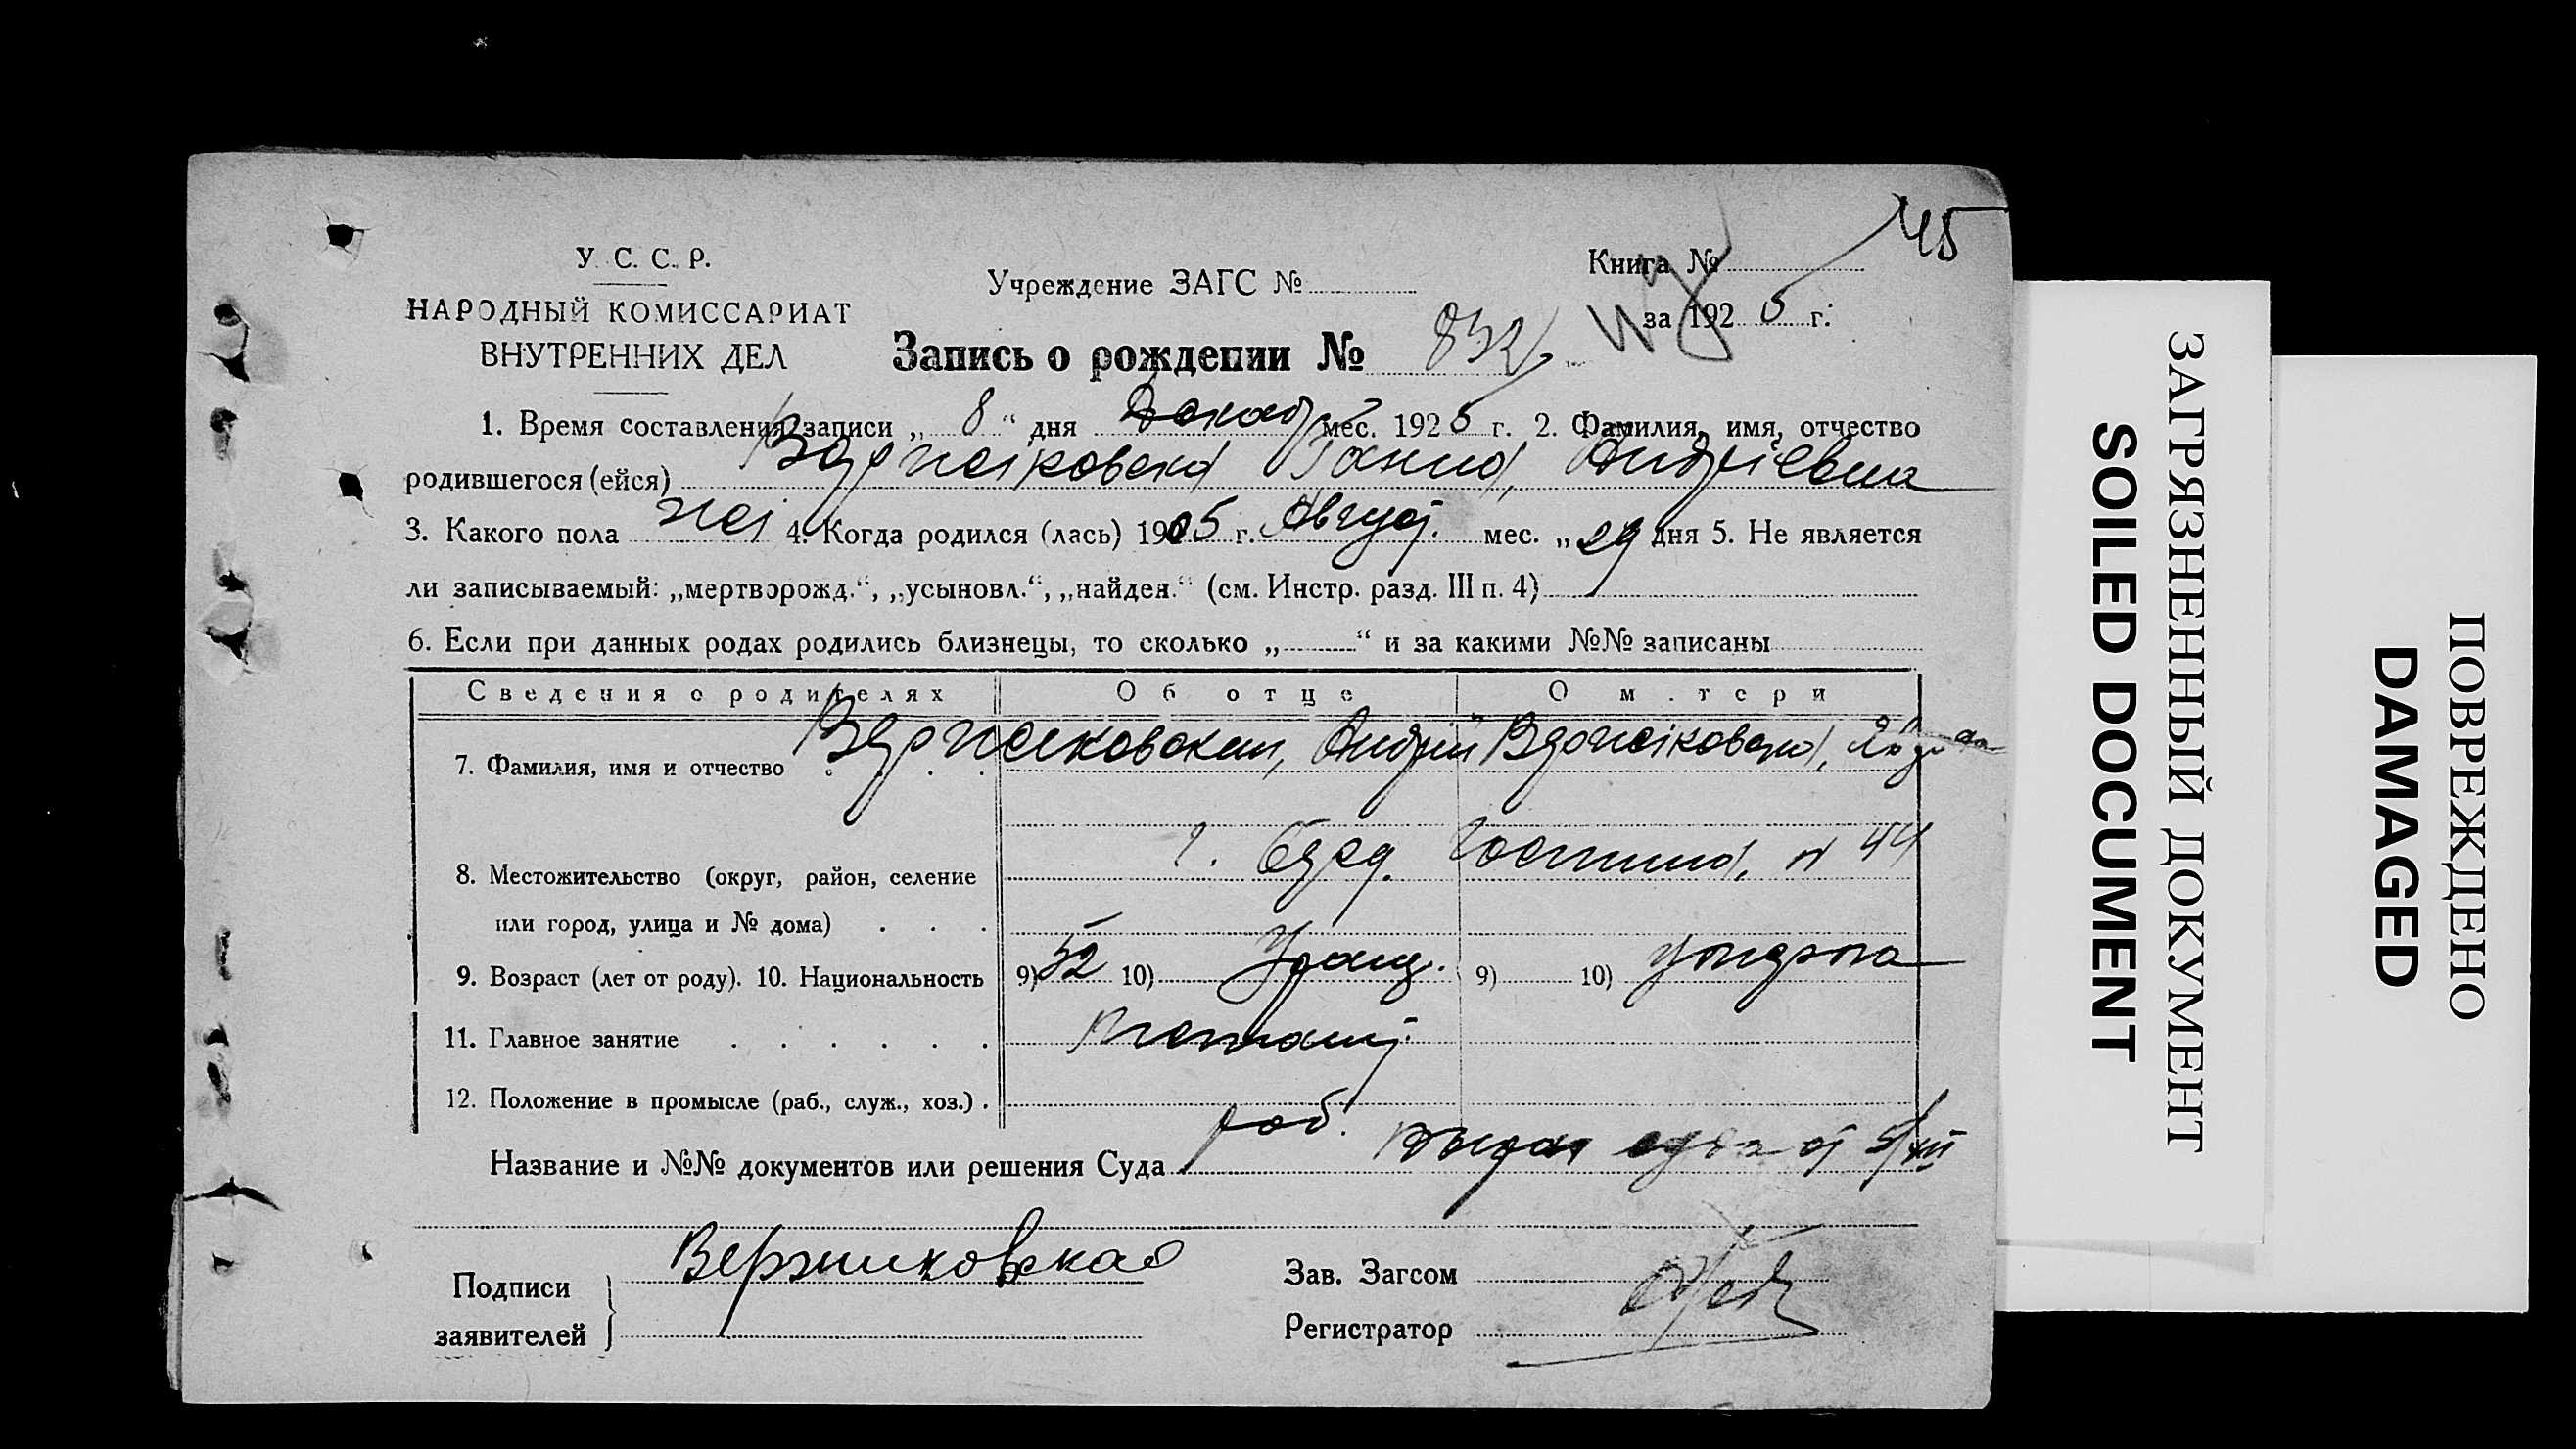 45
У. С. С. Р.
НАРОДНЫЙ КОМИССАРИАТ
ВНУТРЕННИХ ДЕЛ
Учреждение ЗАГС №
Книга №
за 1925 г.
Запись о рождении № 832
1. Время составления записи „ 8 “ дня Декаб мес. 1925 г. 2. Фамилия, имя, отчество
родившегося (ейся)
3. Какого пола 4. Когда родился (лась) 1905 г. Август. мес. „ 29 дня 5. Не является
ли записываемый: „мертворожд.“, „усыновл.“, „найден.“ (см. Инстр. разд. III п. 4)
6. Если при данных родах родились близнецы, то сколько „ “ и за какими №№ записаны
Сведения о родителях Об отце О матери
7. Фамилия, имя и отчество Андрій
8. Местожительство (округ, район, селение
или город, улица и № дома)
44
9. Возраст (лет от роду). 10. Национальность 9) 52 10) 9) 10)
11. Главное занятие
12. Положение в промысле (раб., служ., хоз.)
роб.
Название и №№ документов или решения Суда суда от 5/XII
Подписи
заявителей
Вержиковская
Зав. Загсом
Регистратор
ЗАГРЯЗНЕННЫЙ ДОКУМЕНТ
SOILED DOCUMENT
ПОВРЕЖДЕНО
DAMAGED